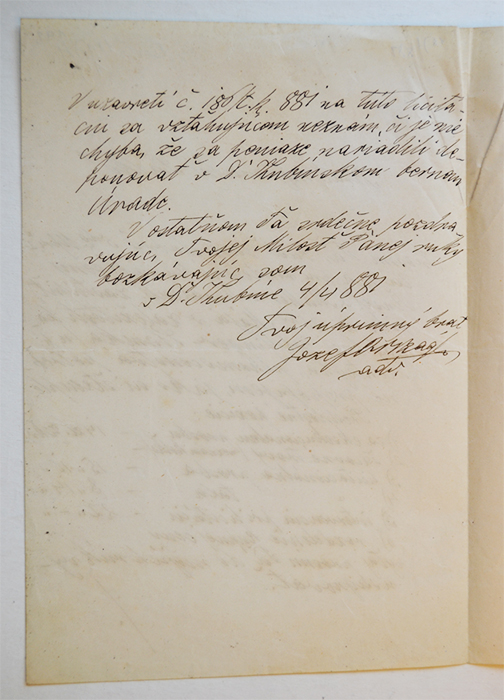 V uzavretí č. 186/t.k. 881 na túto licita-
cnú sa vztahujúcom neznám, či je nie
chyba, že sa peniaze nariadili de-
ponovať v D. Kubínskom bernom
úrade.
V ostatňom Ťa srdečne pozdra-
vujúc, Tvojej Milosť Panej ruky
bozkávajúc som
v D. Kubíne 4/4 881
Tvoj úprimný brat
Jozef
adv.